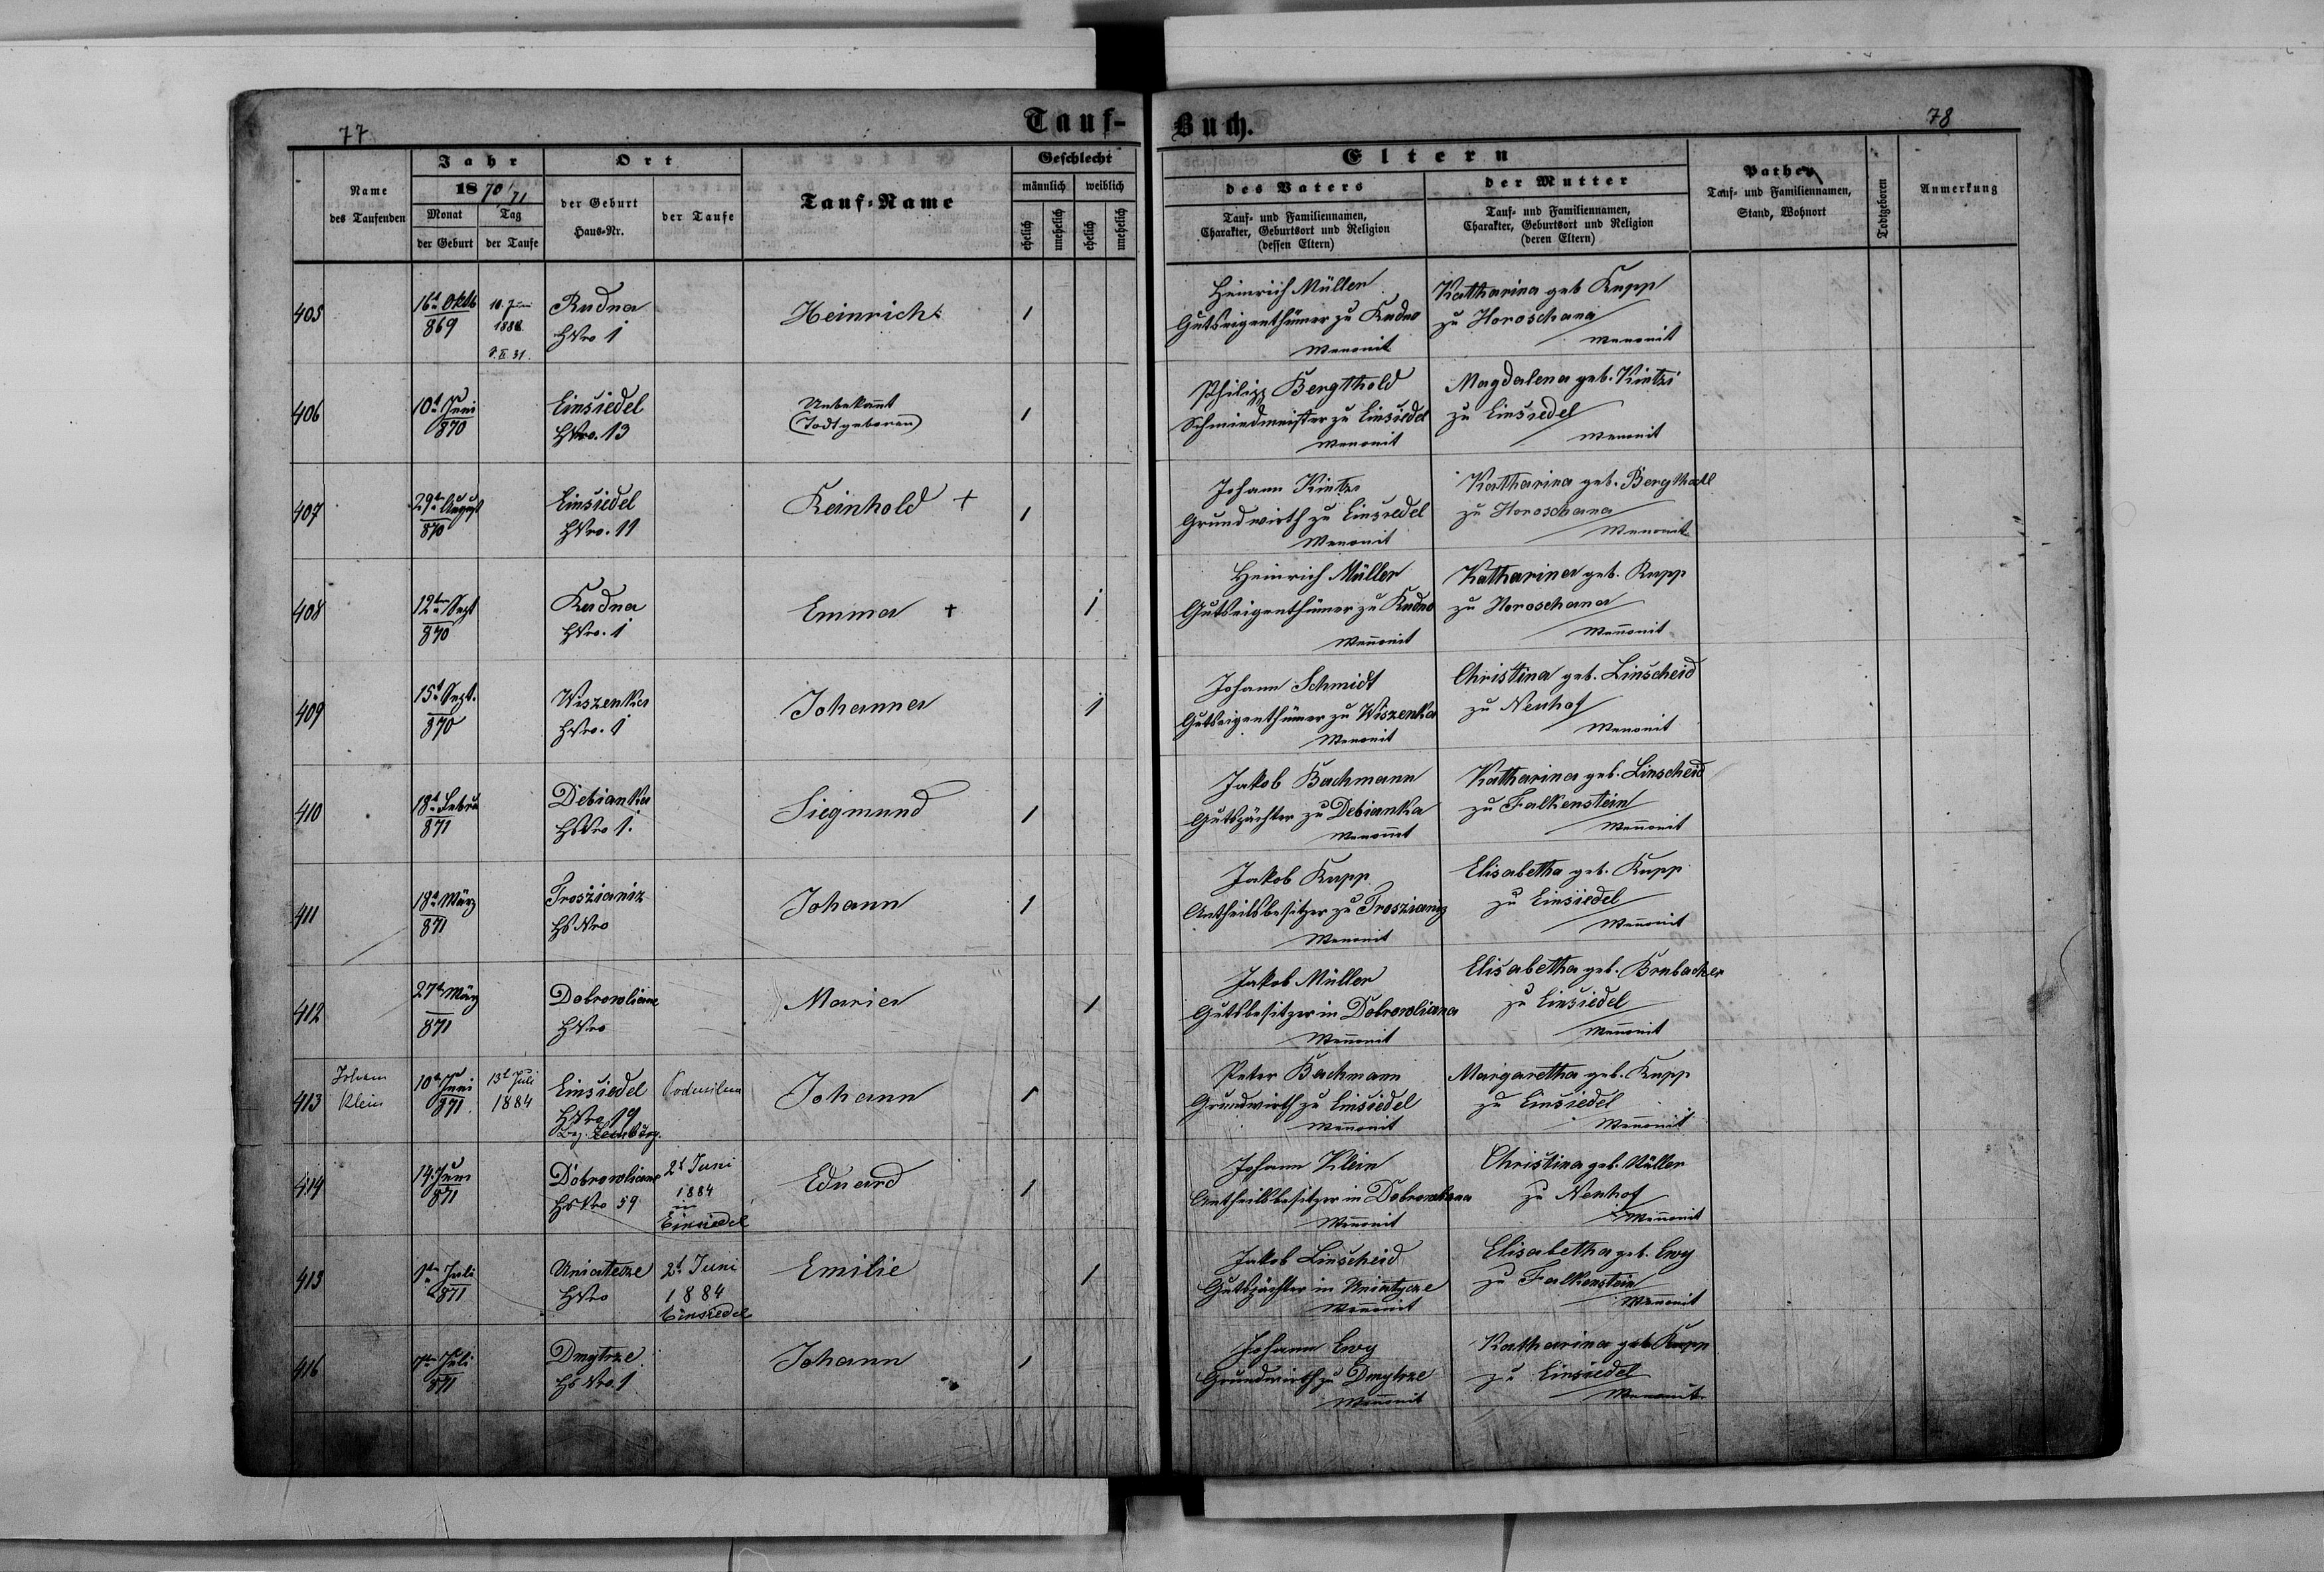 77
Tauf-
Buch.
78
Name
des Taufenden
Jahr
1870/71
Monat
Tag
der Geburt
der Taufe
Ort
der Geburt
Haus-Nr.
der Taufe
Tauf-Name
Geschlecht
männlich
weiblich
ehelich
unehelich
ehelich
unehelich
Eltern
des Vaters
Tauf- und Familiennamen,
Charakter, Geburtsort und Religion
(dessen Eltern)
der Mutter
Tauf- und Familiennamen,
Charakter, Geburtsort und Religion
(deren Eltern)
Pathen
Tauf- und Familiennamen,
Stand, Wohnort
Todtgeboren
Anmerkung
405
16t Oktb
869
10. Juni
Rudna
HNro 1
Heinrich
1
Heinrich Müller
Gutseigenthümer zu Rudno
Menonit
Katharina geb Rupp
zu Horoschana
Menonit
406
10t Juni
870
Einsiedel
HNro. 13
Unbekannt
(Todtgeboren)
1
Philipp Bergthold
Schmiedmeister zu Einsiedel
Menonit
Magdalena geb. Kintzi
zu Einsiedel
Menonit
407
29t August
870
Einsiedel
HNro. 11
Reinhold +
1
Johann Kintzi
Grundwirth zu Einsiedel
Menonit
Katharina geb. Bergthold
zu Horoschana
Menonit
408
12ten Sept
870
Rudna
HNro. 1
Emma +
1
Heinrich Müller
Gutseigenthümer zu Rudno
Menonit
Katharina geb. Rupp
zu Horoschana
Menonit
409
15t Sept.
870
Wiszenka
HNro. 1
Johanna
1
Johann Schmidt
Gutseigenthümer zu Wiszenka
Menonit
Christina geb. Linscheid
zu Neuhof
Menonit
410
18t Febru
871
Debianka
HsNro 1.
Siegmund
1
Jakob Bachmann
Gutspächter zu Debianka
Menonit
Katharina geb. Linscheid
zu Falkenstein
Menonit
411
18t März
871
Troszianiz
HsNro
Johann
1
Jakob Rupp
Antheilsbesitzer zu Troszianiz
Menonit
Elisabetha geb. Rupp
zu Einsiedel
Menonit
412
27t März
871
Dobrowliana
HNro
Maria
1
Jakob Müller
Gutsbesitzer in Dobrowliana
Menonit
Elisabetha geb. Brubacher
zu Einsiedel
Menonit
413
Johann
Klein
10t Juni
871
13t Juli
1884
Einsiedel
HNro 19
Bez. Lemberg.
Johann
1
Peter Bachmann
Grundwirth zu Einsiedel
Menonit
Margaretha geb. Rupp
zu Einsiedel
Menonit
414
14. Juni
871
Dobrowliana
HsNro 59
2t Juni
1884
in
Einsiedel
Eduard
1
Johann Klein
Antheilsbesitzer in Dobrowliana
Menonit
Christina geb. Müller
zu Neuhof
Menonit
415
1ten Juli
871
Uniatecze
HNro
2t Juni
1884
Einsiedel
Emilie
1
Jakob Linscheid
Gutspächter in Uniatycze
Menonit
Elisabetha geb. Ewy
zu Falkenstein
Menonit
416
Juli
871
Dmytrze
HsNro. 1
Johann
1
Johann Ewy
Grundwirth zu Dmytrze
Menonit
Katharina geb. Rupp
zu Einsiedel
Menonit